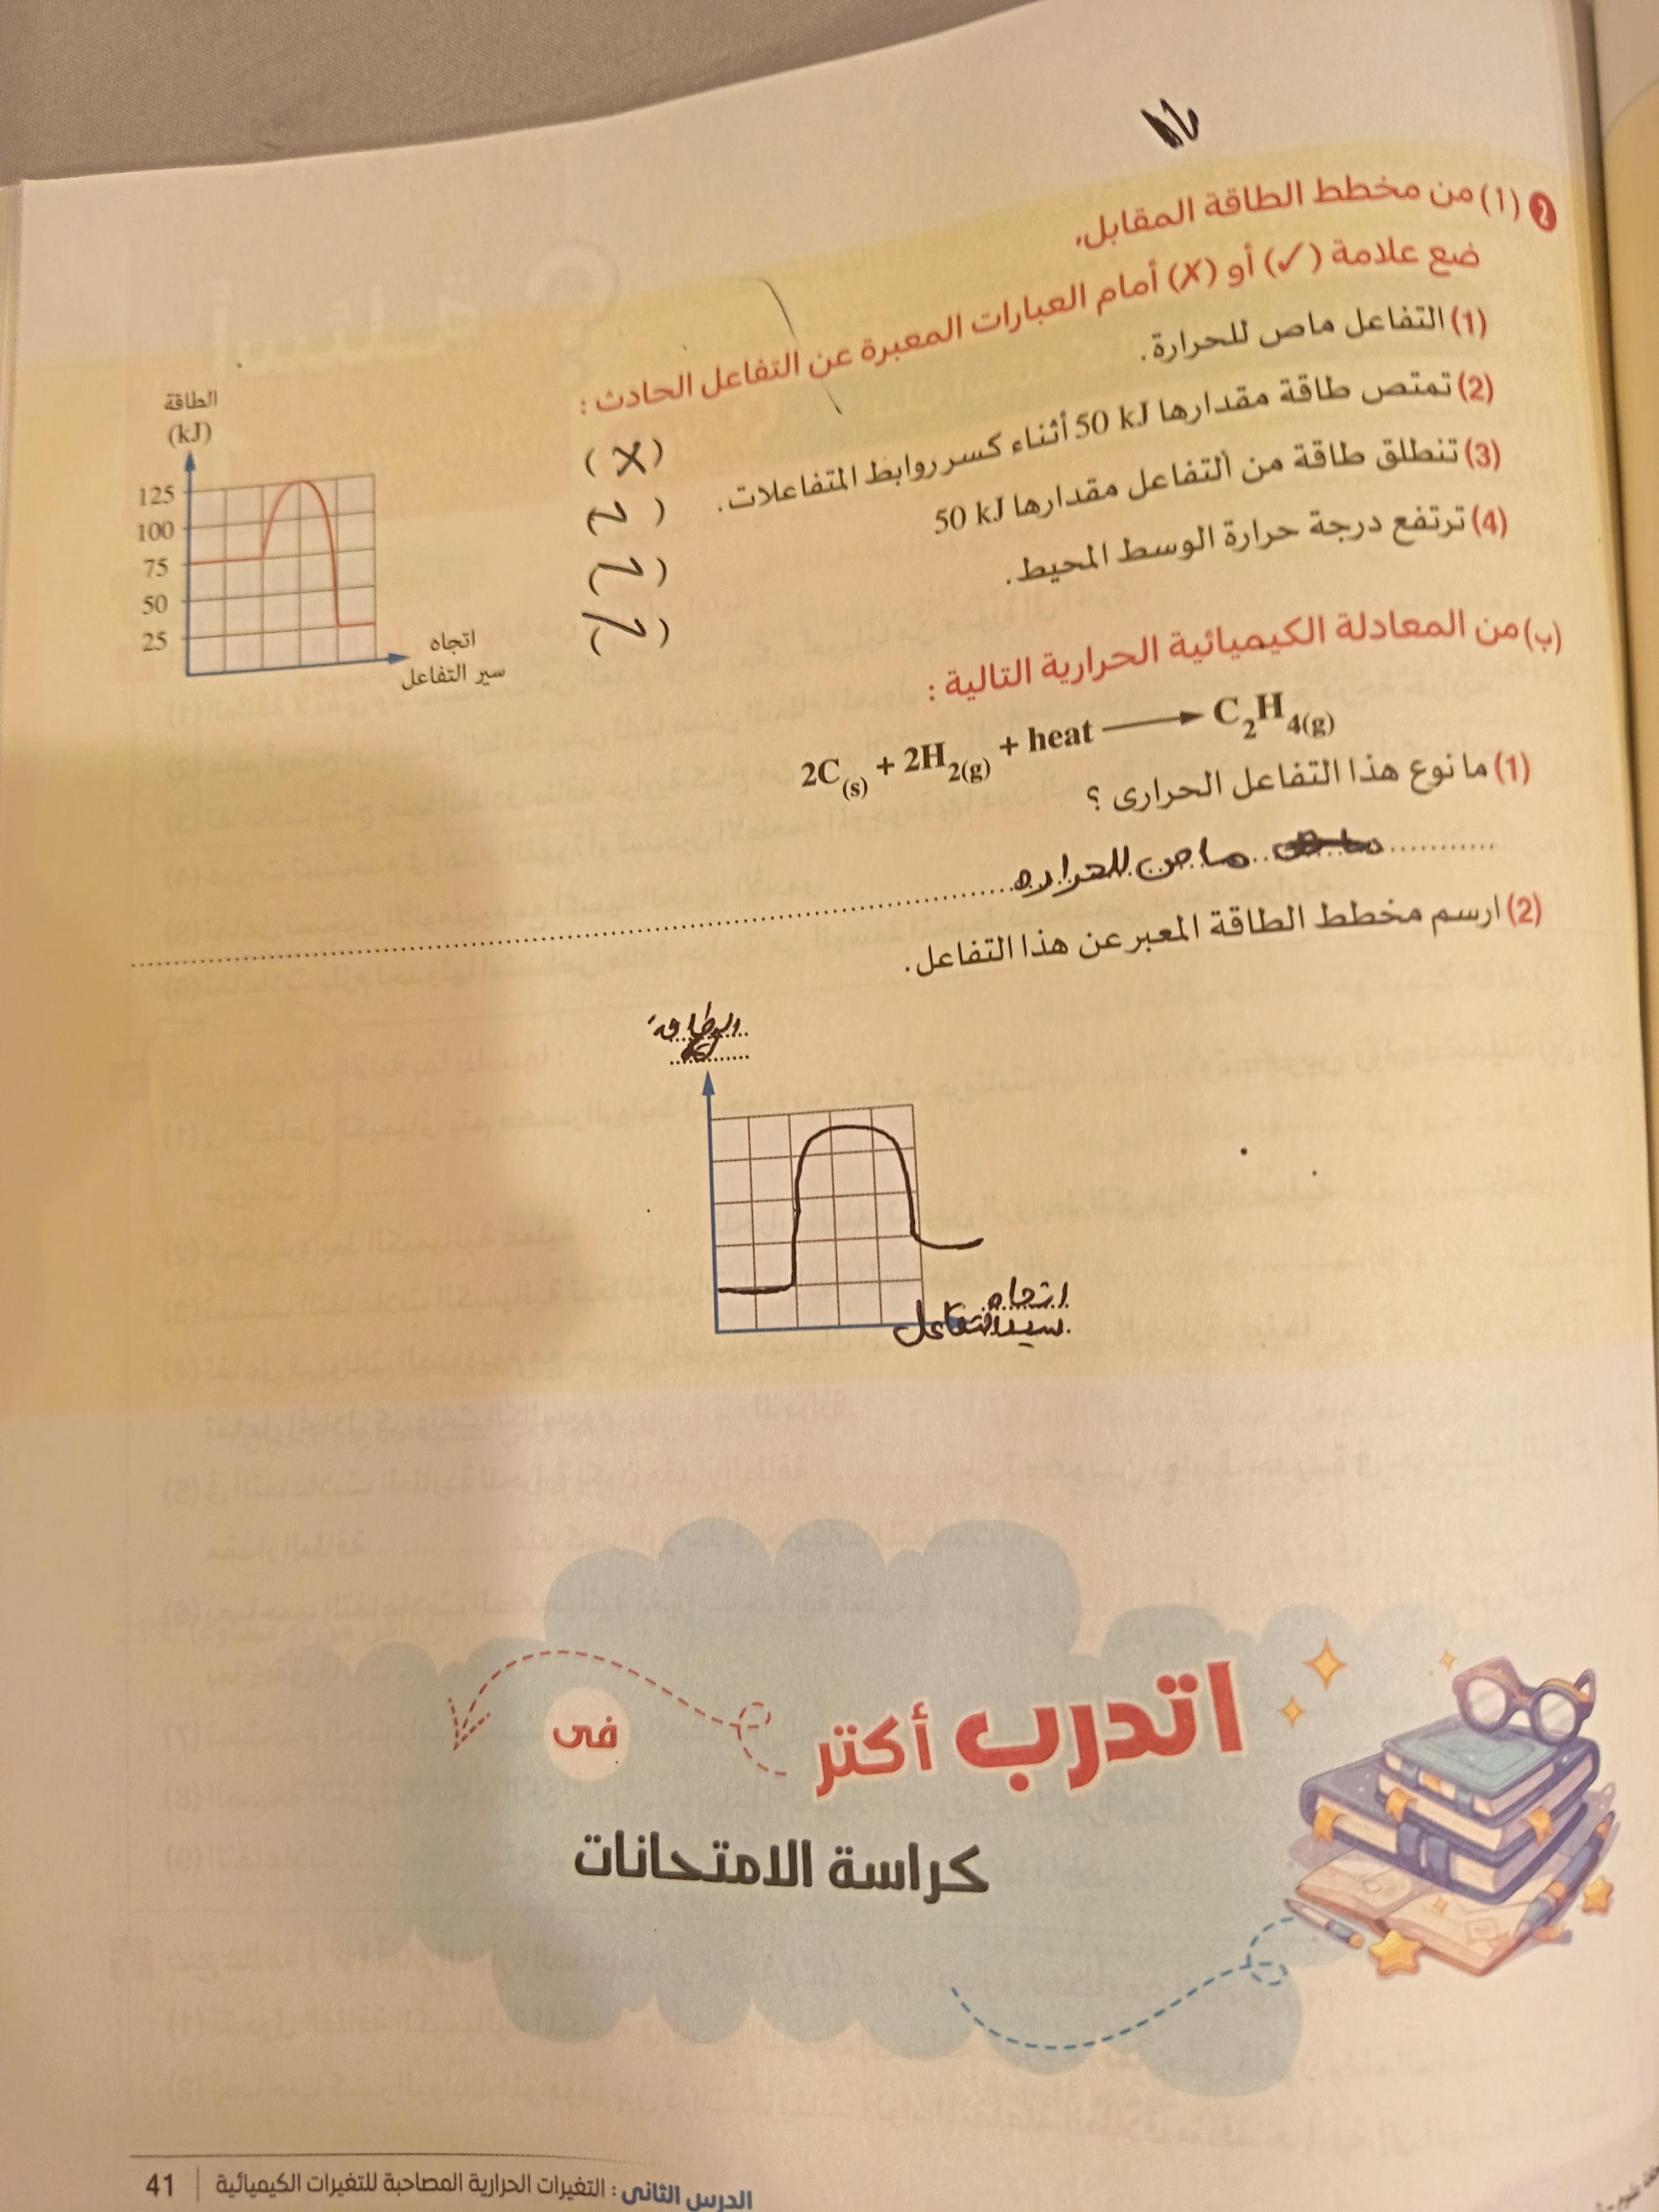 2 (أ) من مخطط الطاقة المقابل،
ضع علامة (✓) أو (✗) أمام العبارات المعبرة عن التفاعل الحادث :
(1) التفاعل ماص للحرارة. (✗)
(2) تمتص طاقة مقدارها 50 kJ أثناء كسر روابط المتفاعلات. (✓)
(3) تنطلق طاقة من التفاعل مقدارها 50 kJ (✓)
(4) ترتفع درجة حرارة الوسط المحيط. (✓)
الطاقة
(kJ)
125
100
75
50
25
اتجاه
سير التفاعل
(ب) من المعادلة الكيميائية الحرارية التالية :
2C(s) + 2H2(g) + heat ⟶ C2H4(g)
(1) ما نوع هذا التفاعل الحرارى ؟
ماص للحراره
(2) ارسم مخطط الطاقة المعبر عن هذا التفاعل.
الطاقة
اتجاه
سير التفاعل
اتدرب أكتر فى
كراسة الامتحانات
الدرس الثانى : التغيرات الحرارية المصاحبة للتغيرات الكيميائية | 41